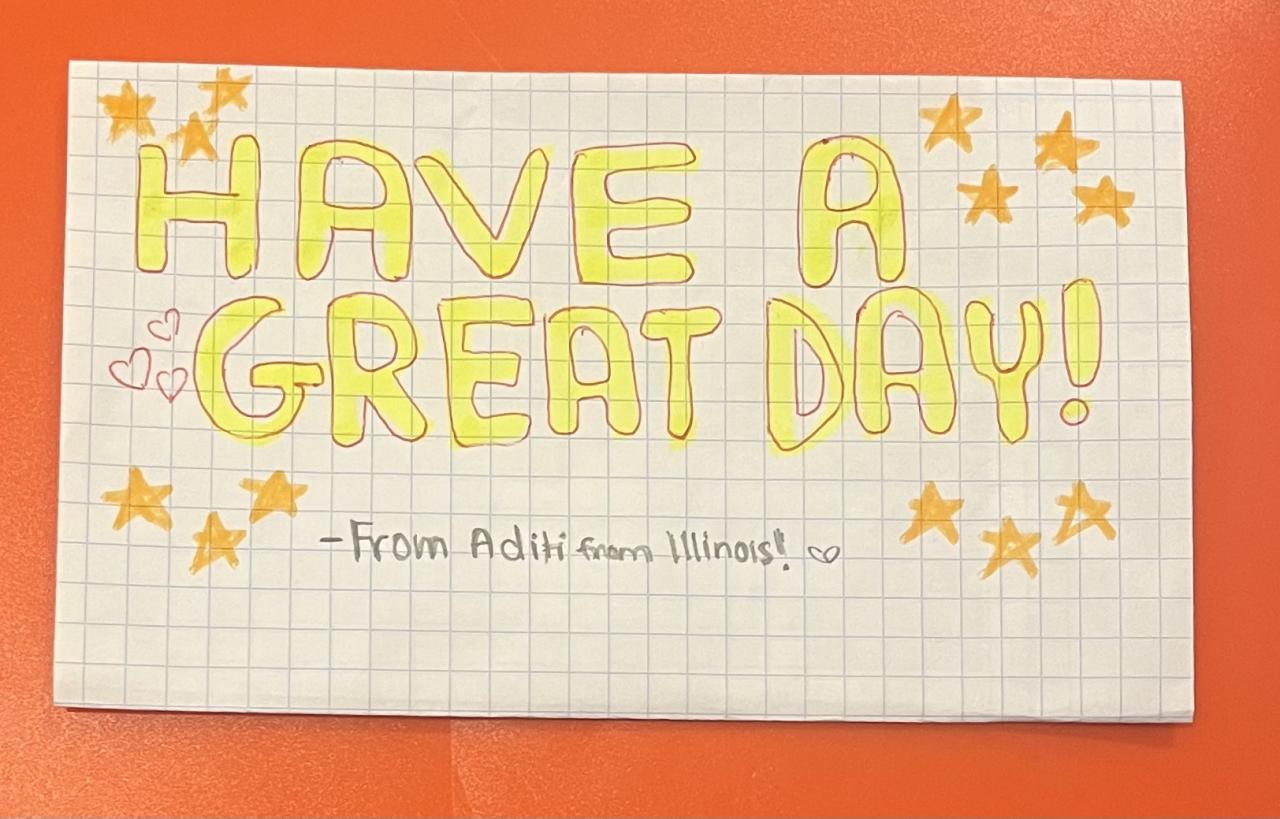 HAVE A
GREAT DAY!
-From Aditi from Illinois! ♡